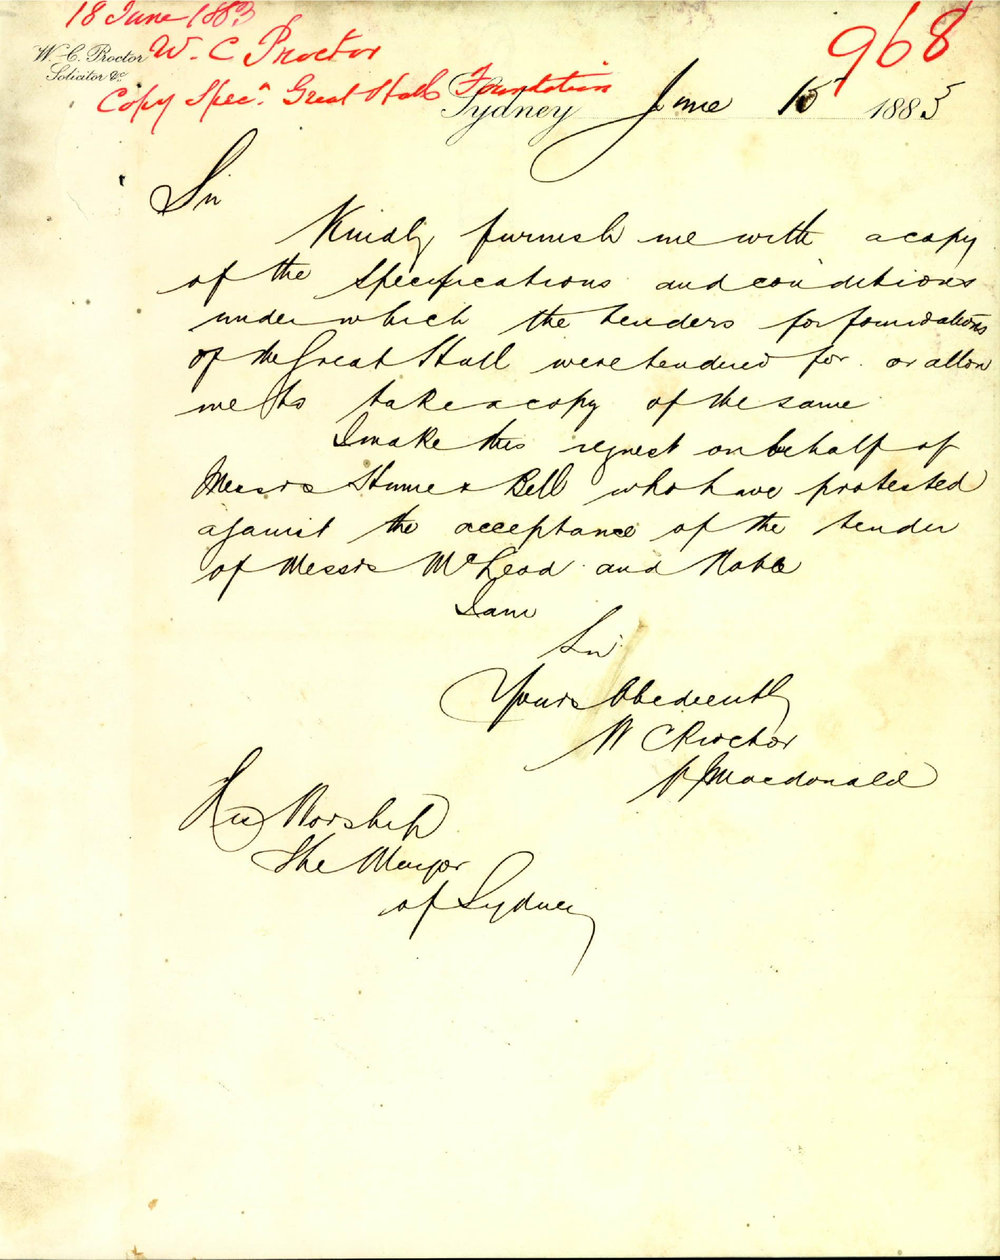 18 June 1883
968
W. C. Proctor
Solicitor &c.
W. C Proctor
Copy Specn. Great Hall Foundation
Sydney June 15 1883
Sir
Kindly furnish me with a copy
of the specifications and conditions
under which the tenders for foundations
of the Great Hall were tendered for or allow
me to take a copy of the same
I make this request on behalf of
Messrs Hume & Bell who have protested
against the acceptance of the tender
of Messrs McLeod and Noble
I am
Sir
Yours Obediently
W C Proctor
p Macdonald
His Worship
The Mayor
of Sydney